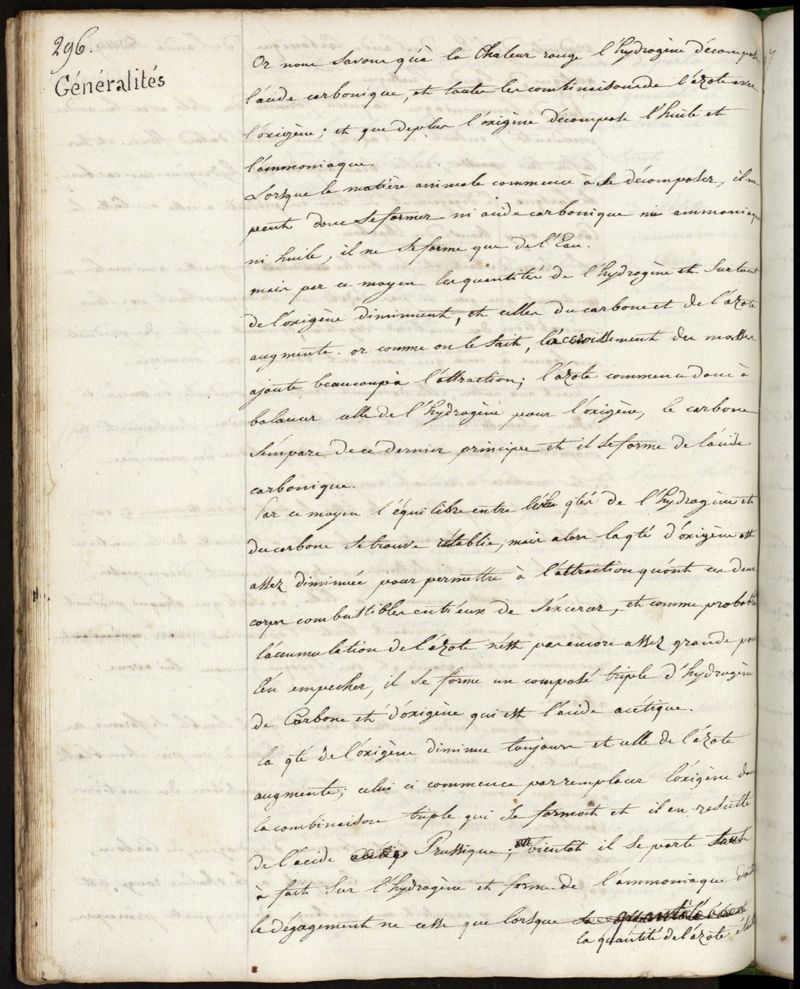 296.
Généralités
Or nous savons qu'à la Chaleur rouge l'hydrogène décompose
l'acide carbonique, et toutes les combinaisons de l'azote avec
l'oxigène; et que de plus l'oxigène décompose l'huile et
l'ammoniaque.
Lorsque la matière animale commence à se décomposer, il ne
peut donc se former ni acide carbonique ni ammoniaque
ni huile, il ne se forme que de l'Eau.
mais par ce moyen les quantités de l'hydrogène et surtout
de l'oxigène diminuent, et celles du carbone et de l'azote
augmente. or comme on le sait, l'accroissement des masses
ajoute beaucoup à l'attraction; l'azote commence donc à
balancer celle de l'hydrogène pour l'oxigène, le carbone
s'empare de ce dernier principe et il se forme de l'acide
carbonique.
Par ce moyen l'équilibre entre les qtés de l'hydrogène et
du carbone se trouve rétablie, mais alors la qté d'oxigène est
assez diminuée pour permettre à l'attraction qu'ont ces deux
corps combustibles entr'eux de s'éxercer, et comme probablt
l'accumulation de l'azote n'est pas encore assez grande pour
l'en empecher, il se forme un composé triple d'hydrogène
de Carbone et d'oxigène qui est l'acide acétique.
la qté de l'oxigène diminue toujours et celle de l'azote
augmente; celui ci commence par remplacer l'oxigène dans
la combinaison triple qui se formoit et il en resulte
de l'acide Prussique; bientot il se porte tout
à fait sur l'hydrogène et forme de l'ammoniaque dont
le dégagement ne cesse que lorsque la quantité
la quantité de l'azote,